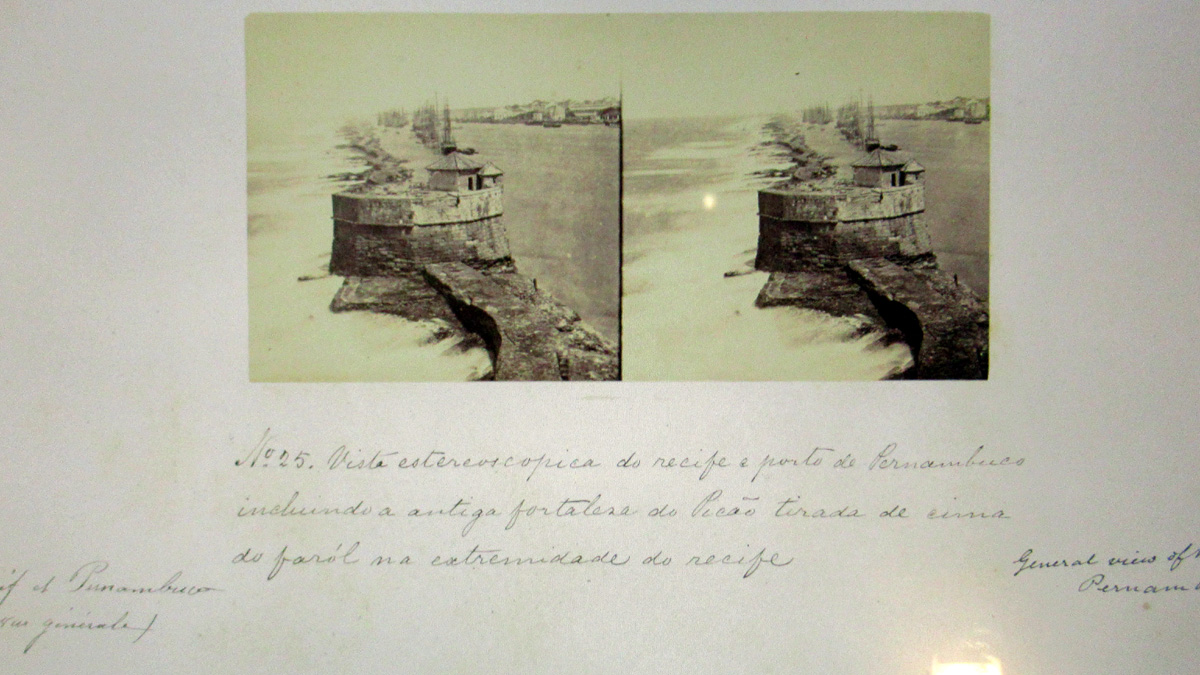 No. 25. Vista estereoscopica do recife e porto de Pernambuco
incluindo a antiga fortaleza do Picão tirada de cima
do faról na extremidade do recife
et Pernambuco
générale)
General view of
Pernam